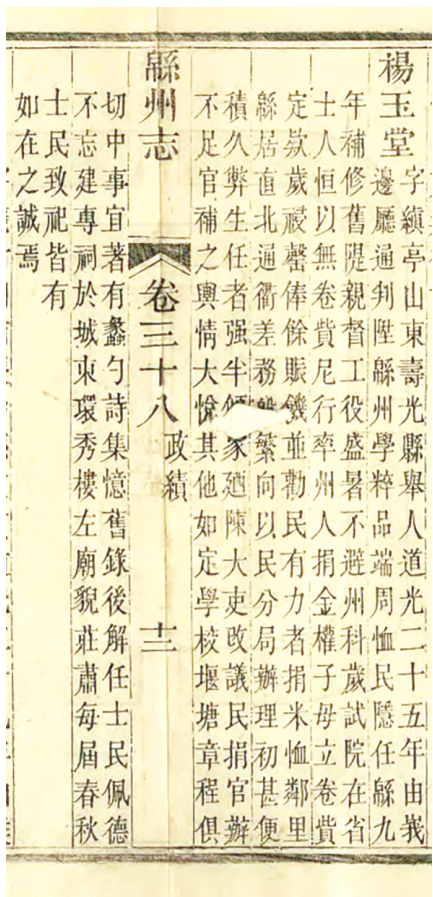 楊玉堂
字縝亭山東壽光縣舉人道光二十五年由峩
邊廳通判陞緜州學粹品端周恤民隱任緜九
年補修舊隄親督工役盛暑不避州科歲試院在省
士人恒以無卷貲尼行率州人捐金權子母立卷貲
定欵歲祲罄俸餘賑饑並勸民有力者捐米恤鄰里
緜居直北通衢差務繁向以民分局辦理初甚便
積久弊生任者强半家廼陳大吏改議民捐官辦
不足官補之輿情大悅其他如定學校堰塘章程俱
緜州志 卷三十八 政績 十二
切中事宜著有蠡勺詩集憶舊錄後解任士民佩德
不忘建專祠於城東環秀樓左廟貌莊肅每屆春秋
士民致祀皆有
如在之誠焉